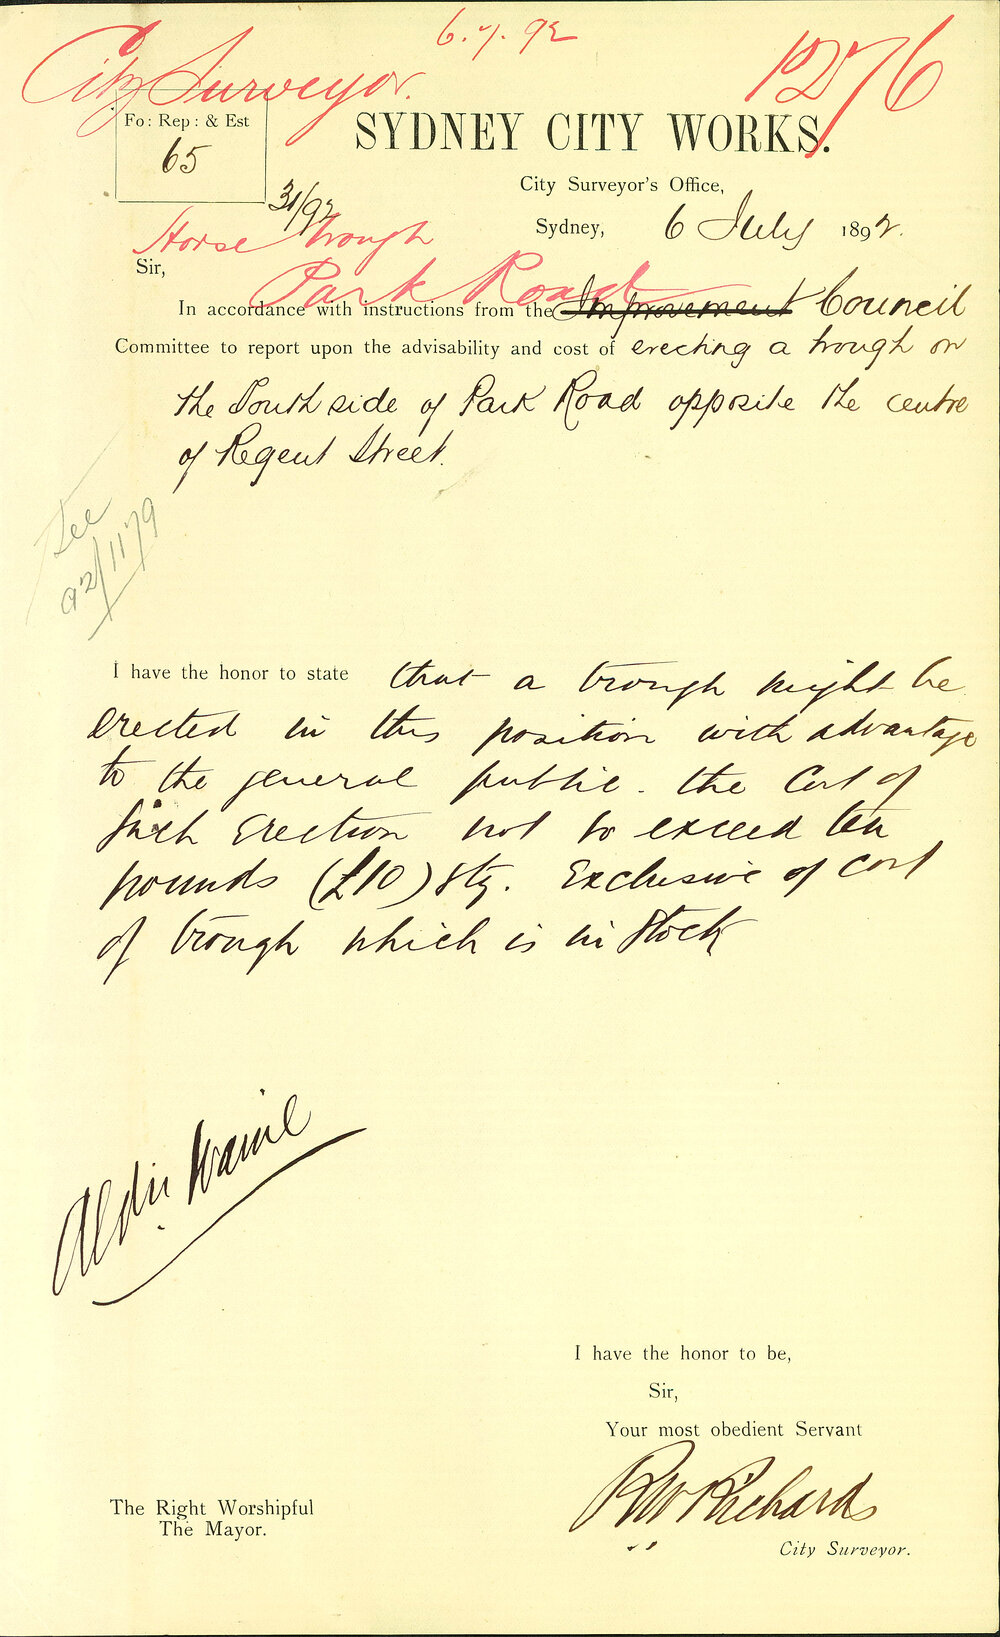 6.7.92
City Surveyor.
1276
Fo: Rep: & Est
65
31/92
SYDNEY CITY WORKS.
City Surveyor's Office,
Sydney, 6 July 1892.
Horse trough
Park Road
Sir,
In accordance with instructions from the Improvement Council
Committee to report upon the advisability and cost of erecting a trough on
the South side of Park Road opposite the centre
of Regent Street.
See
92/1179
I have the honor to state that a trough might be
erected in this position with advantage
to the general public. the Cost of
such Erection not to exceed ten
pounds (£10) Stg. Exclusive of cost
of trough which is in Stock
I have the honor to be,
Sir,
Your most obedient Servant
RW Richards
City Surveyor.
The Right Worshipful
The Mayor.